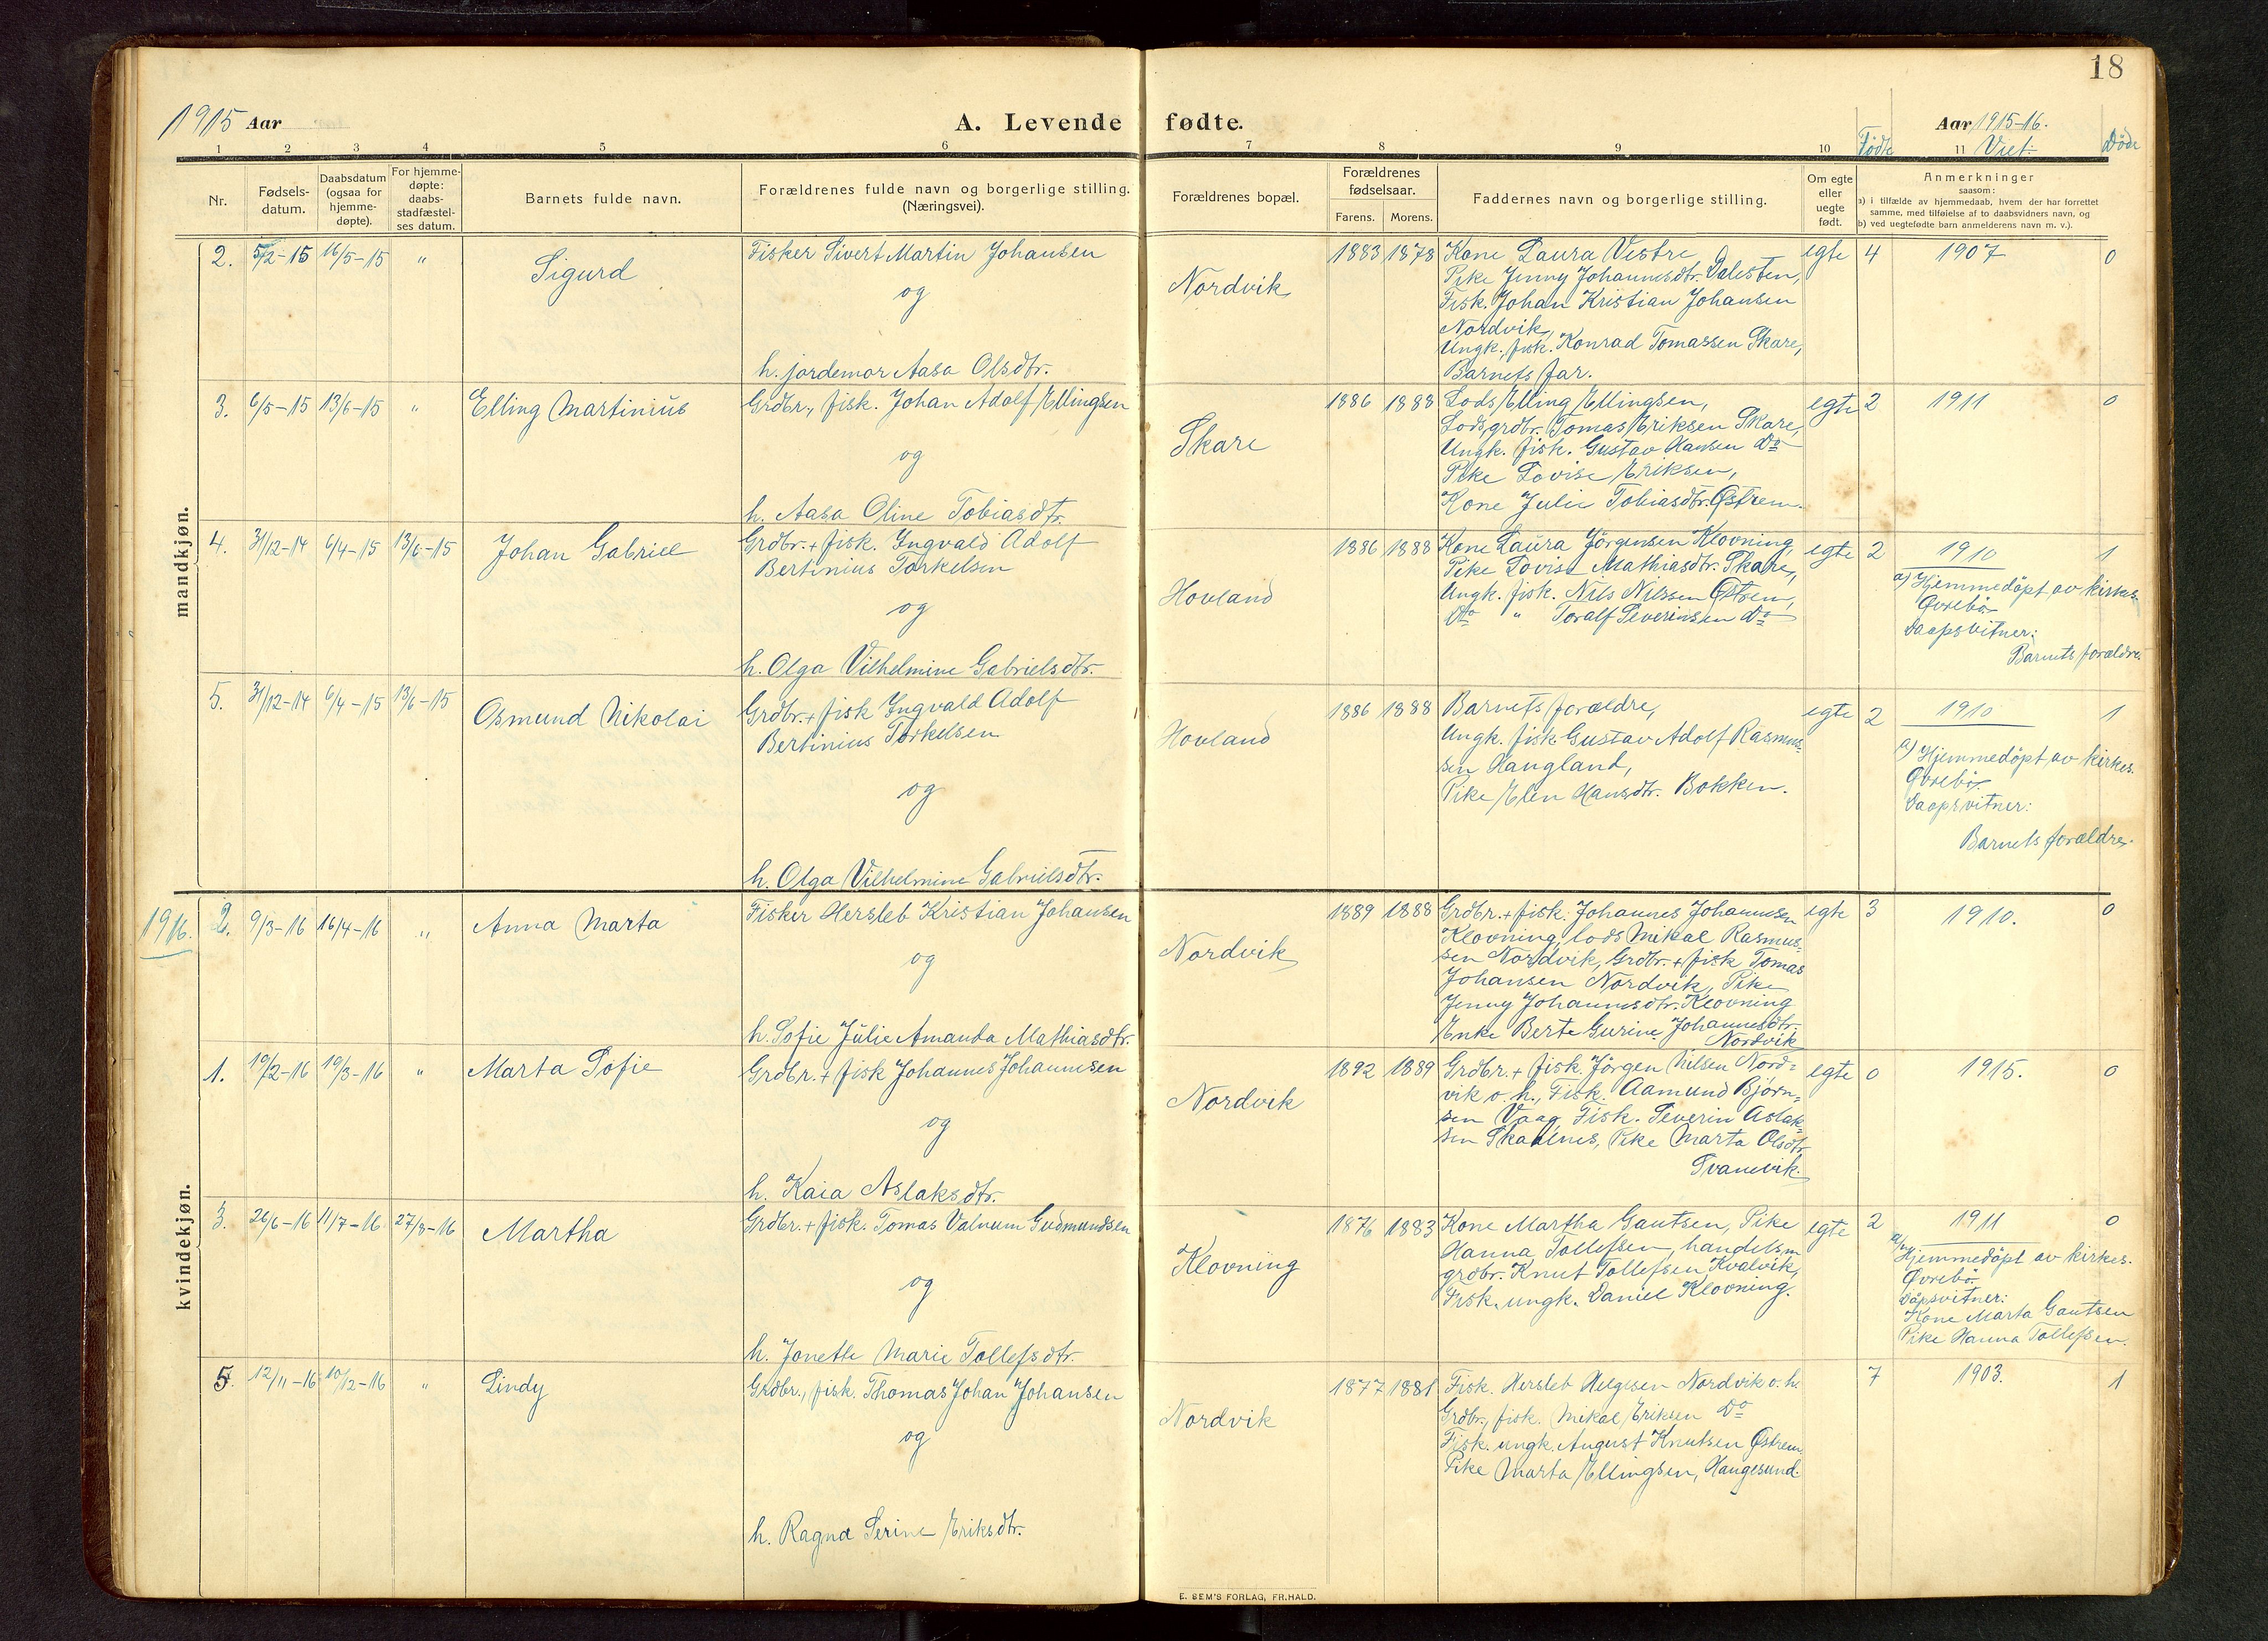 18
1915 Aar
A. Levende fødte.
Aar 1915-16.
1 2 3 4 5 6 7 8 9 10 Fødte 11 Viet: Døde
Nr.
Fødsels-
datum.
Daabsdatum
(ogsaa for
hjemme-
døpte).
For hjemme-
døpte:
daabs-
stadfæstel-
ses datum.
Barnets fulde navn.
Forældrenes fulde navn og borgerlige stilling.
(Næringsvei).
Forældrenes bopæl.
Forældrenes
fødselsaar.
Farens. Morens.
Faddernes navn og borgerlige stilling.
Om egte
eller
uegte
født.
Anmerkninger
saasom:
a) i tilfælde av hjemmedaab, hvem der har forrettet
samme, med tilføielse af to daabsvidners navn, og
b) ved uegtefødte barn anmelderens navn m. v.).
mandkjøn.
2. 5/2-15 16/5-15 " Sigurd
Fisker Sivert Martin Johansen
og
h. jordemor Aasa Olsdtr.
Nordvik
1883 1878
Kone Laura Vestre
Pike Jenny Johannesdtr. Dalesten,
Fisk. Johan Kristian Johansen
Nordvik,
Ungk. fisk. Konrad Tomassen Skare,
Barnets far.
egte 4 1907 0
3. 6/5-15 13/6-15 " Elling Martinius
Grdbr., fisk. Johan Adolf Ellingsen
og
h. Aasa Oline Tobiasdtr.
Skare
1886 1888
Lods Elling Ellingsen,
Lods, grdbr. Tomas Eriksen Skare,
Ungk. fisk. Gustav Hansen Do
Pike Lovise Eriksen,
Kone Julie Tobiasdtr. Østrem.
egte 2 1911 0
4. 31/12-14 6/4-15 13/6-15 Johan Gabriel
Grdbr. + fisk. Ingvald Adolf
Bertinius Torkelsen
og
h. Olga Vilhelmine Gabrielsdtr.
Hovland
1886 1888
Kone Laura Jörgensen Klovning,
Pike Lovise Mathiasdtr. Skare,
Ungk. fisk. Nils Nilssen Østrem,
Do " Toralf Severinsen Do
egte 2 1910 1
a) Hjemmedöpt av kirkes.
Øvrebö
Daapsvitner:
Barnets forældre.
5. 31/12-14 6/4-15 13/6-15 Osmund Nikolai
Grdbr. + fisk Ingvald Adolf
Bertinius Torkelsen
og
h. Olga Vilhelmine Gabrielsdtr.
Hovland
1886 1888
Barnets forældre,
Ungk. fisk Gustav Adolf Rasmus-
sen Haugland,
Pike Elen Hansdtr. Bokken.
egte 2 1910 1
a) Hjemmedöpt av kirkes.
Øvrebö
Daapsvitner:
Barnets forældre.
1916.
kvindekjøn.
2. 9/3-16 16/4-16 " Anna Marta
Fisker Hersleb Kristian Johansen
og
h. Sofie Julie Amanda Mathiasdtr.
Nordvik
1889 1888
Grdbr. + fisk. Johannes Johannesen
Klovning, lods Mikal Rasmus-
sen Nordvik, Grdbr. + fisk Tomas
Johansen Nordvik, Pike
Jenny Johannesdtr. Klovning
Enke Berte Gurine Johannesdtr.
Nordvik
egte 3 1910. 0
1. 19/2-16 19/3-16 " Marta Sofie
Grdbr. + fisk Johannes Johannesen
og
h. Kaia Aslaksdtr.
Nordvik
1892 1889
Grdbr. + fisk. Jörgen Nilsen Nord-
vik o. h., Fisk. Aamund Bjørn-
sen Vaag, Fisk. Severin Aslak-
sen Skaalnes, Pike Marta Olsdtr.
Svanevik.
egte 0 1915. 0
3. 26/6-16 11/7-16 27/8-16 Martha
Grdbr. + fisk. Tomas Valnum Gudmundsen
og
h. Jonette Marie Tollefsdtr.
Klovning
1876 1883
Kone Martha Gautsen, Pike
Hanna Tollefsen, handelsm
grdbr. Knut Tollefsen Kvalvik,
Fisk. ungk. Daniel Klovning.
egte 2 1911 0
a) Hjemmedöpt av kirkes.
Øvrebö
Dåpsvitner:
Kone Marta Gautsen
Pike Hanna Tollefsen.
5. 12/11-16 10/12-16 " Lindy
Grdbr., fisk. Thomas Johan Johansen
og
h. Ragna Serine Eriksdtr.
Nordvik
1877 1881
Fisk. Hersleb Helgesen Nordvik o. h.
Grdbr., fisk. Mikal Eriksen Do
Fisk. ungk. August Knutsen Østrem
Pike Marta Ellingsen, Haugesund.
7 1903. 1
E. SEM'S FORLAG, FR.HALD.